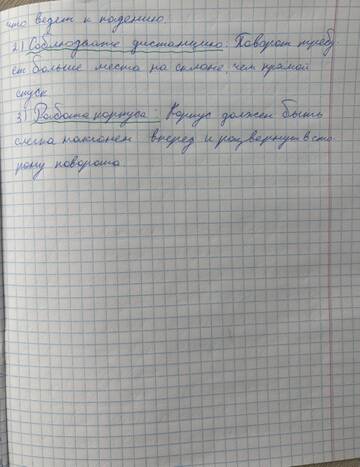 что ведет к падению.
2.) Соблюдайте дистанцию: Поворот требу
ет больше места на склоне, чем прямой
спуск
3) Работа корпуса: Корпус должен быть
слегка наклонен вперед и развернут в сто
рону поворота